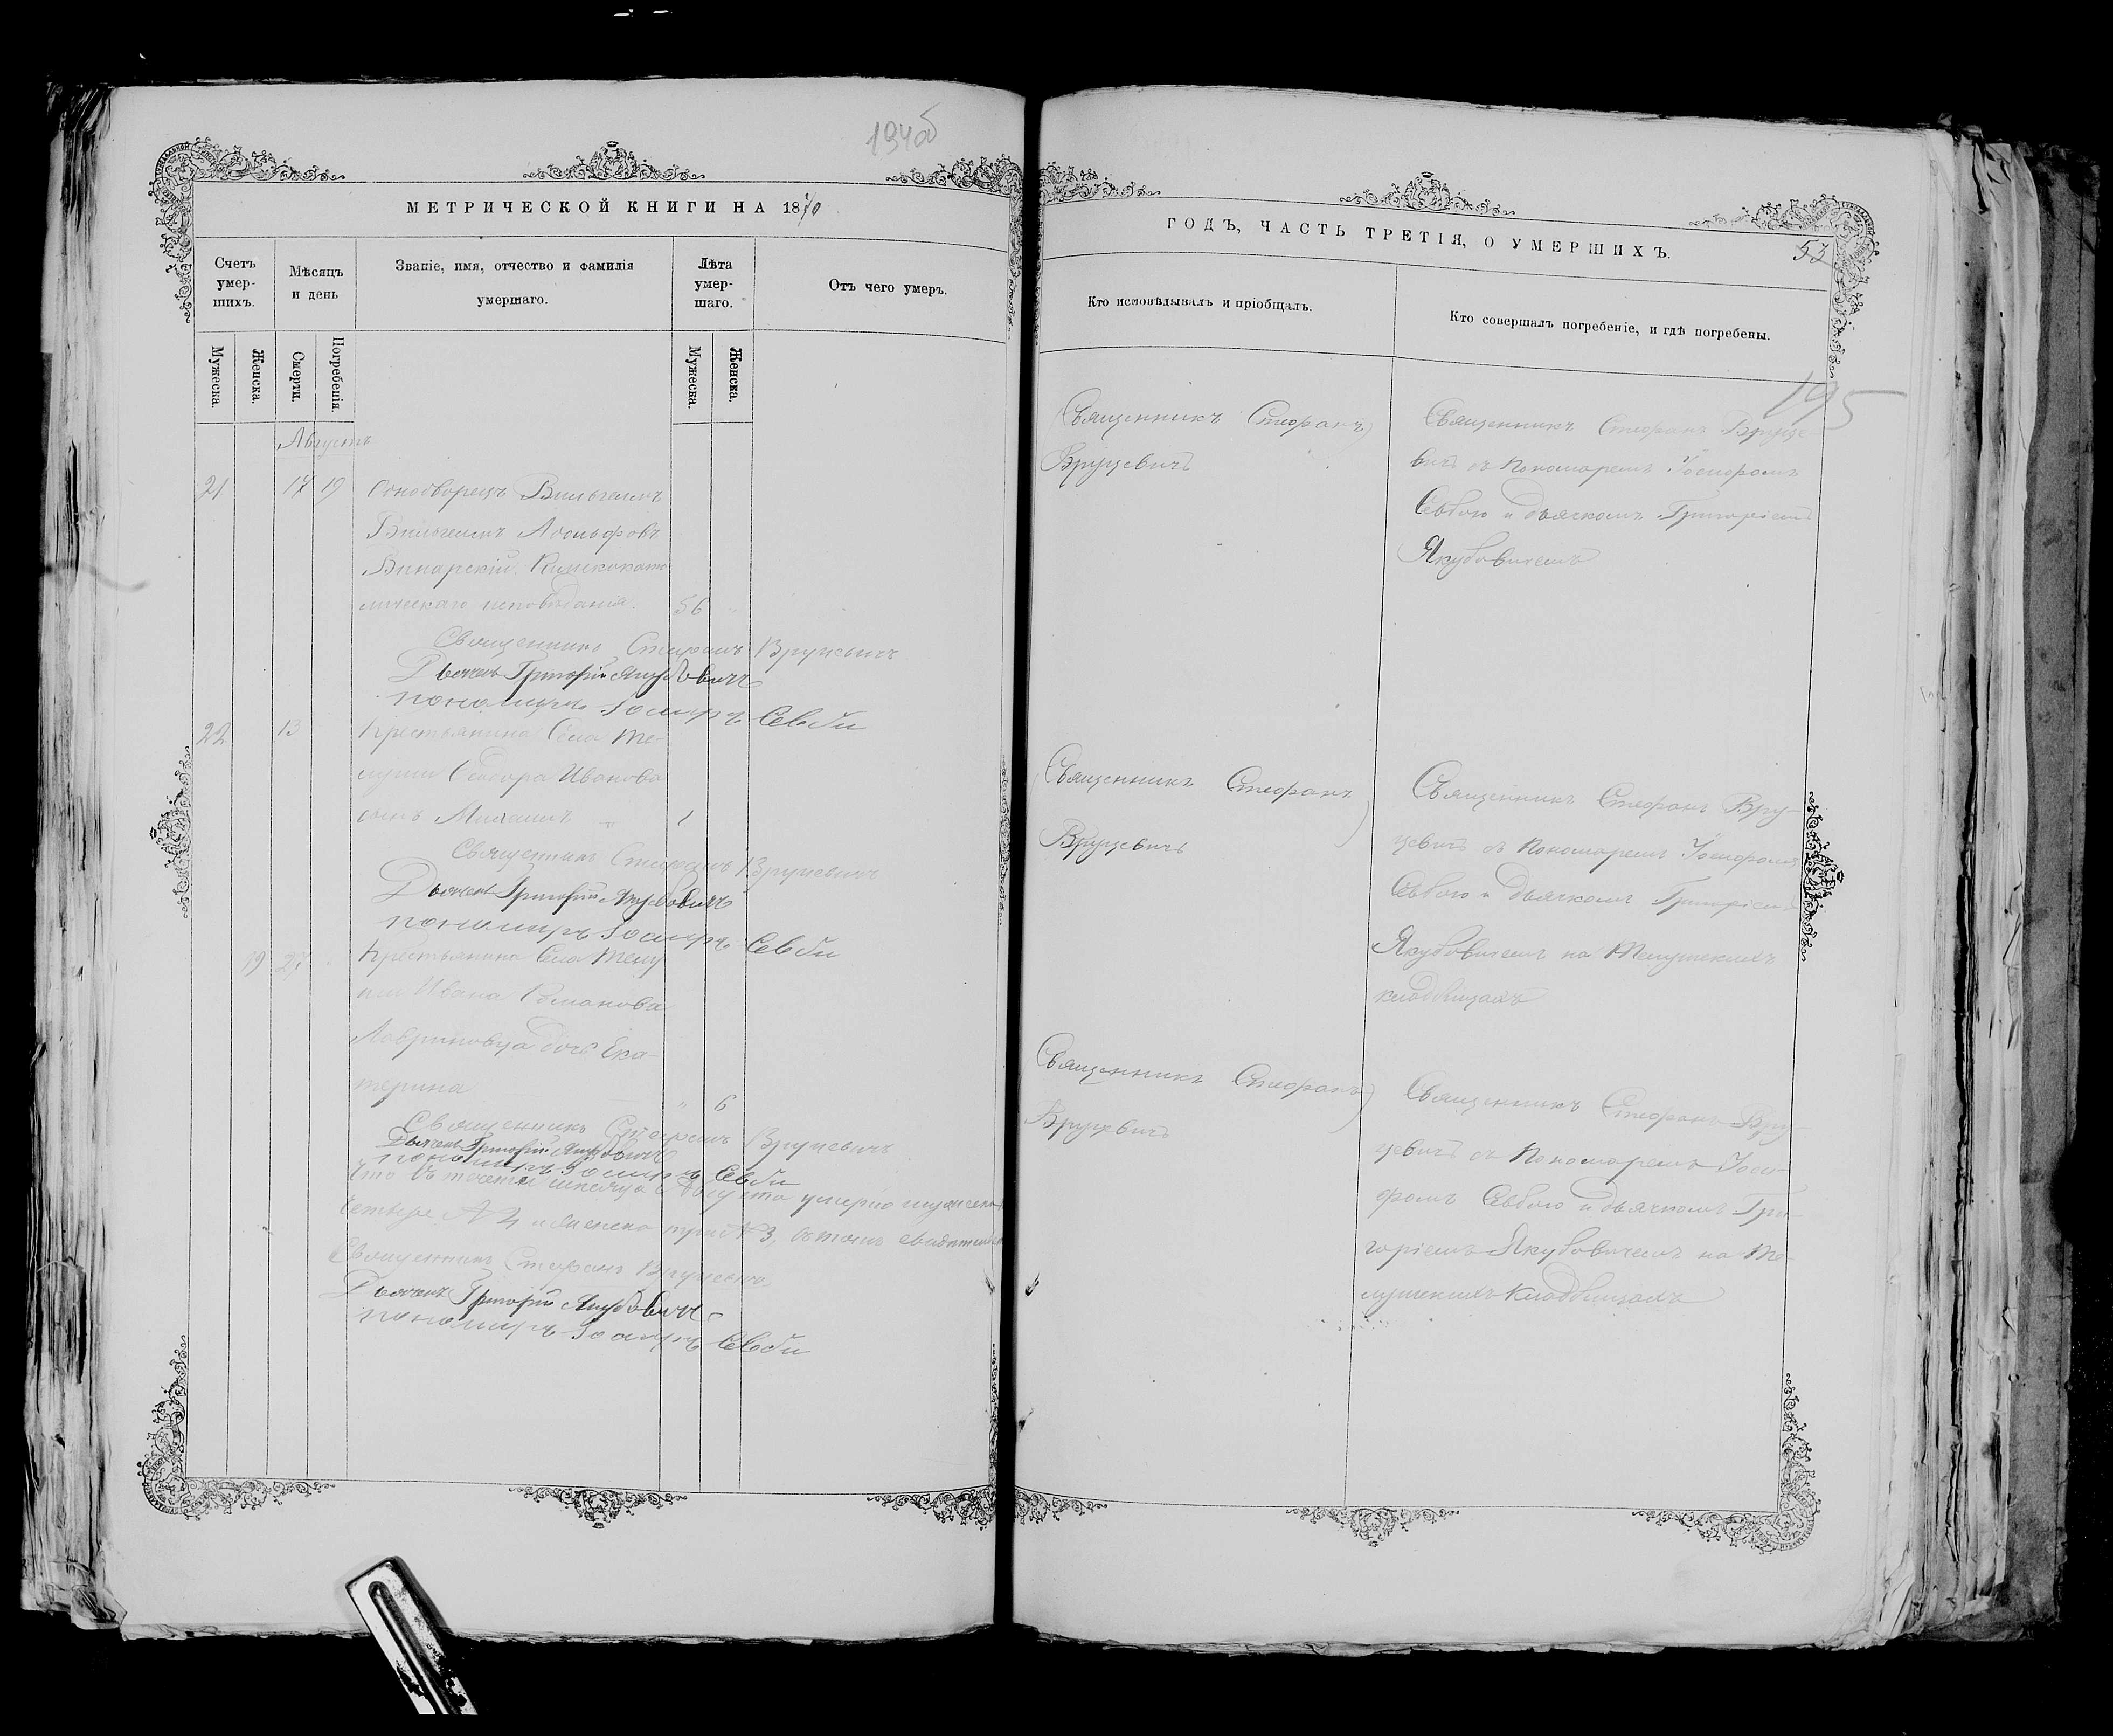 194об
МЕТРИЧЕСКОЙ КНИГИ НА 1870
Счетъ умер-шихъ.
Мѣсяцъ и день
Званіе, имя, отчество и фамилія умершаго.
Лѣта умер-шаго.
Отъ чего умеръ.
Мужеска.
Женска.
Смерти.
Погребенія.
Мужеска.
Женска.
Августъ
21 17 19 Однодворецъ Вильгельмъ
Вильгельмъ Адольфовъ
Винарскій Римскокато
лическаго исповѣданія. 56
Священникъ Стефанъ Вруцевичъ
Дьячекъ Григорій Якубовичъ
пономарь Іосифъ Севби
22 13 Крестьянина Села Ме-
лушки Ѳеодора Иванова
сынъ Михаилъ 1
Священникъ Стефанъ Вруцевичъ
Дьячекъ Григорій Якубовичъ
пономарь Іосифъ Севби
19 Крестьянина Села
Ивана Романова
дочь Ека-
терина " 6
Священникъ Стефанъ Вруцевичъ
Дьячекъ Григорій Якубовичъ
пономарь Іосифъ Севби
Что въ теченіи мѣсяца Августа умерло мужеска
четыре № 4 и женска три № 3, въ томъ
Священникъ Стефанъ Вруцевичъ
Дьячекъ Григорій Якубовичъ
пономарь Іосифъ Севби
ГОДЪ, ЧАСТЬ ТРЕТІЯ, О УМЕРШИХЪ.
53
Кто исповѣдывалъ и пріобщалъ.
Кто совершалъ погребеніе, и гдѣ погребены.
195
Священникъ Стефанъ
Вруцевичъ
Священникъ Стефанъ Вруце-
вичъ съ Пономаремъ Іосифомъ
Севбою и дьячкомъ Григоріемъ
Якубовичемъ
Священникъ Стефанъ
Вруцевичъ
Священникъ Стефанъ Вру-
цевичъ съ Пономаремъ Іосифомъ
Севбою и дьячкомъ Григоріемъ
Якубовичемъ на
кладбищахъ
Священникъ Стефанъ
Вруцевичъ
Священникъ Стефанъ Вру-
цевичъ съ Пономаремъ Іоси-
фомъ Севбою и дьячкомъ Гри-
горіемъ Якубовичемъ на
кладбищахъ